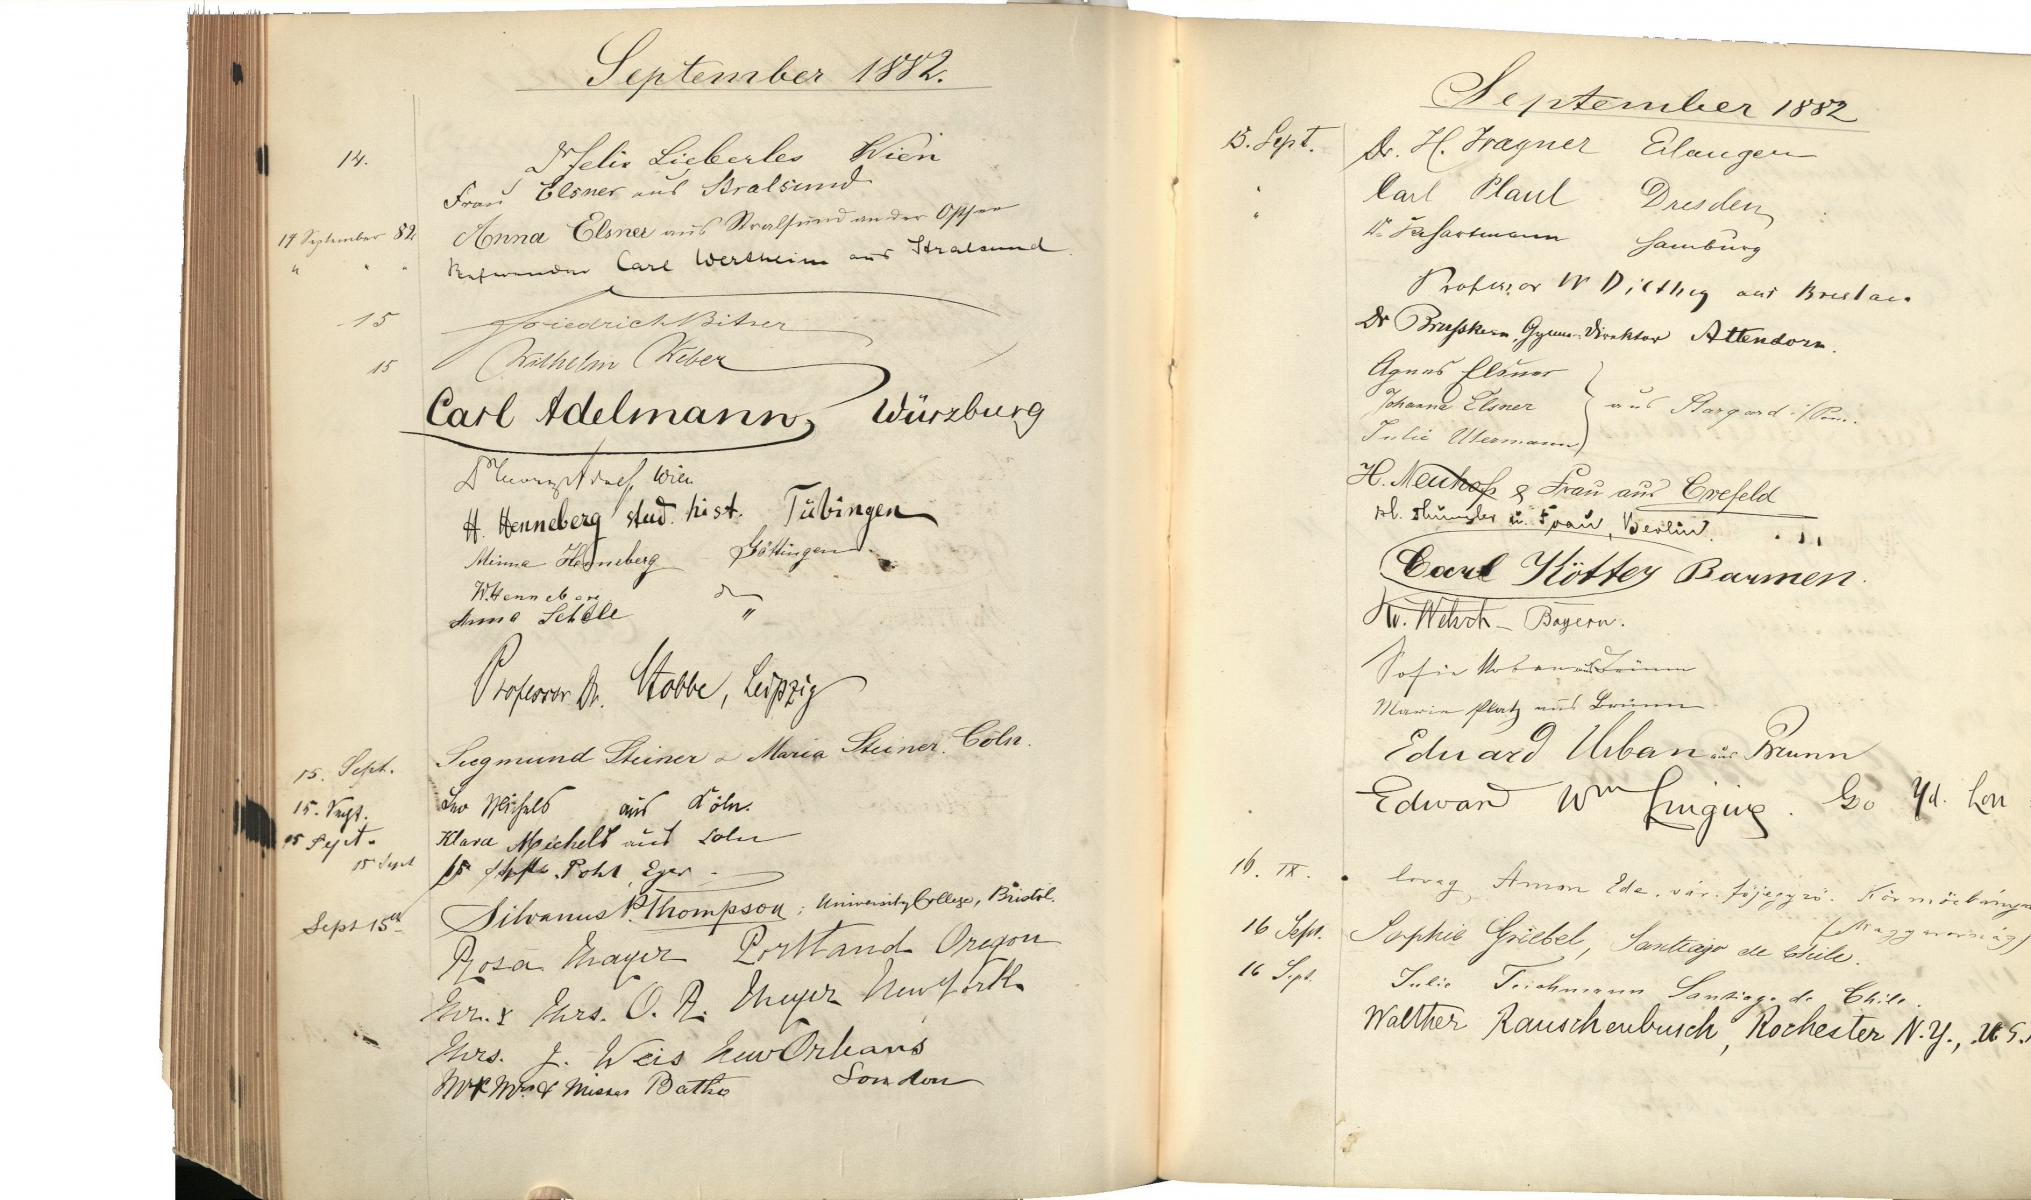 September 1882.
14. Dr Felix Lieberles Wien
Frau Elsner aus Stralsund
Anna Elsner aus Stralsund an der Ostsee
14 September 82
" " " Referendar Carl Wertheim aus Stralsund
15 Friedrich Bitzer
15 Wilhelm Weber
Carl Adelmann, Würzburg
Dr Wien
H. Henneberg stud. hist. Tübingen
Minna Henneberg Göttingen
W. Henneberg
Anna "
Professor Dr. Stobbe, Leipzig
Siegmund Steiner & Maria Steiner. Cöln.
15. Sept.
15. Sept. Leo Michels aus Köln.
15 Sept. Klara Michels aus Coln
15 Sept 15 Pohl, Eger
Sept 15th Silvanus P. Thompson; University College, Bristol.
Rosa Mayer Portland Oregon
Mr. & Mrs. O. R. Meyer New York
Mrs. J. Weis New Orleans
Mr & Mrs & Misses London
September 1882
15. Sept. Dr. H. Wagner Erlangen
" Carl Plaul Dresden
" Dr Hartmann Hamburg
Professor W Dilthey aus Breslau
Dr Gymn. Direktor Attendorn.
Agnes Elsner
Johanna Elsner aus Stargard i/Pom.
Julie Utermann
H. Neuhoff & Frau aus Crefeld
u. Frau, Berlin.
Carl Kötter Barmen.
Welsch - Bayern.
Sofie Urban aus Brünn
Marie Platz aus Brünn
Eduard Urban aus Brunn
Edward Wm
16. IX. lovag Amon Ede. vár. főjegyző. Körmöcbánya
(Magyarország)
16 Sept. Sophie Griebel, Santiago de Chile.
16 Sept. Julie Teichmann Santiago de Chile.
Walther Rauschenbusch, Rochester N.Y., U.S.